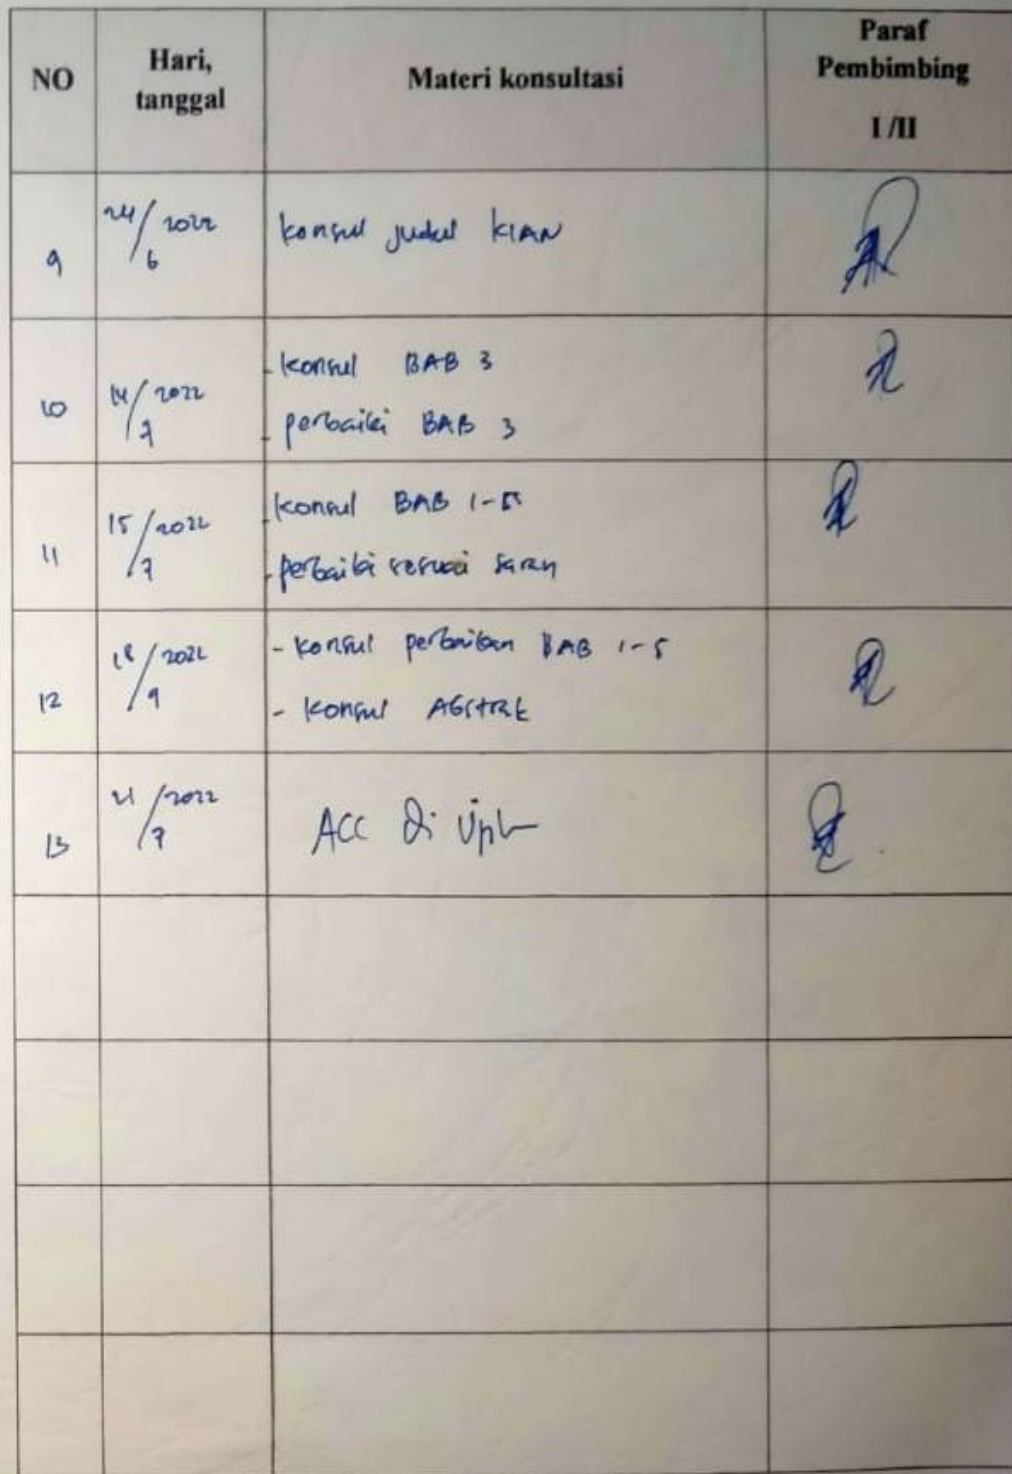 NO
Hari,
tanggal
Materi konsultasi
Paraf
Pembimbing
I /II
9
24/6 2022
konsul judul KIAN
10
14/7 2022
- konsul BAB 3
- perbaiki BAB 3
11
15/7 2022
- konsul BAB 1-5
- perbaiki sesuai saran
12
18/9 2022
- konsul perbaikan BAB 1-5
- konsul
13
21/7 2022
ACC di